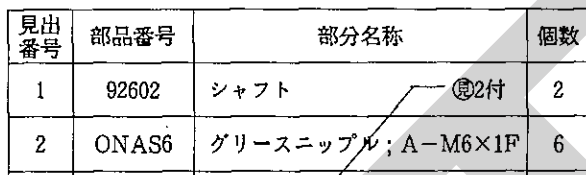 見出番号 部品番号 部分名称 個数
1 92602 シャフト ㊋2付 2
2 ONAS6 グリースニップル；A－M6×1F 6